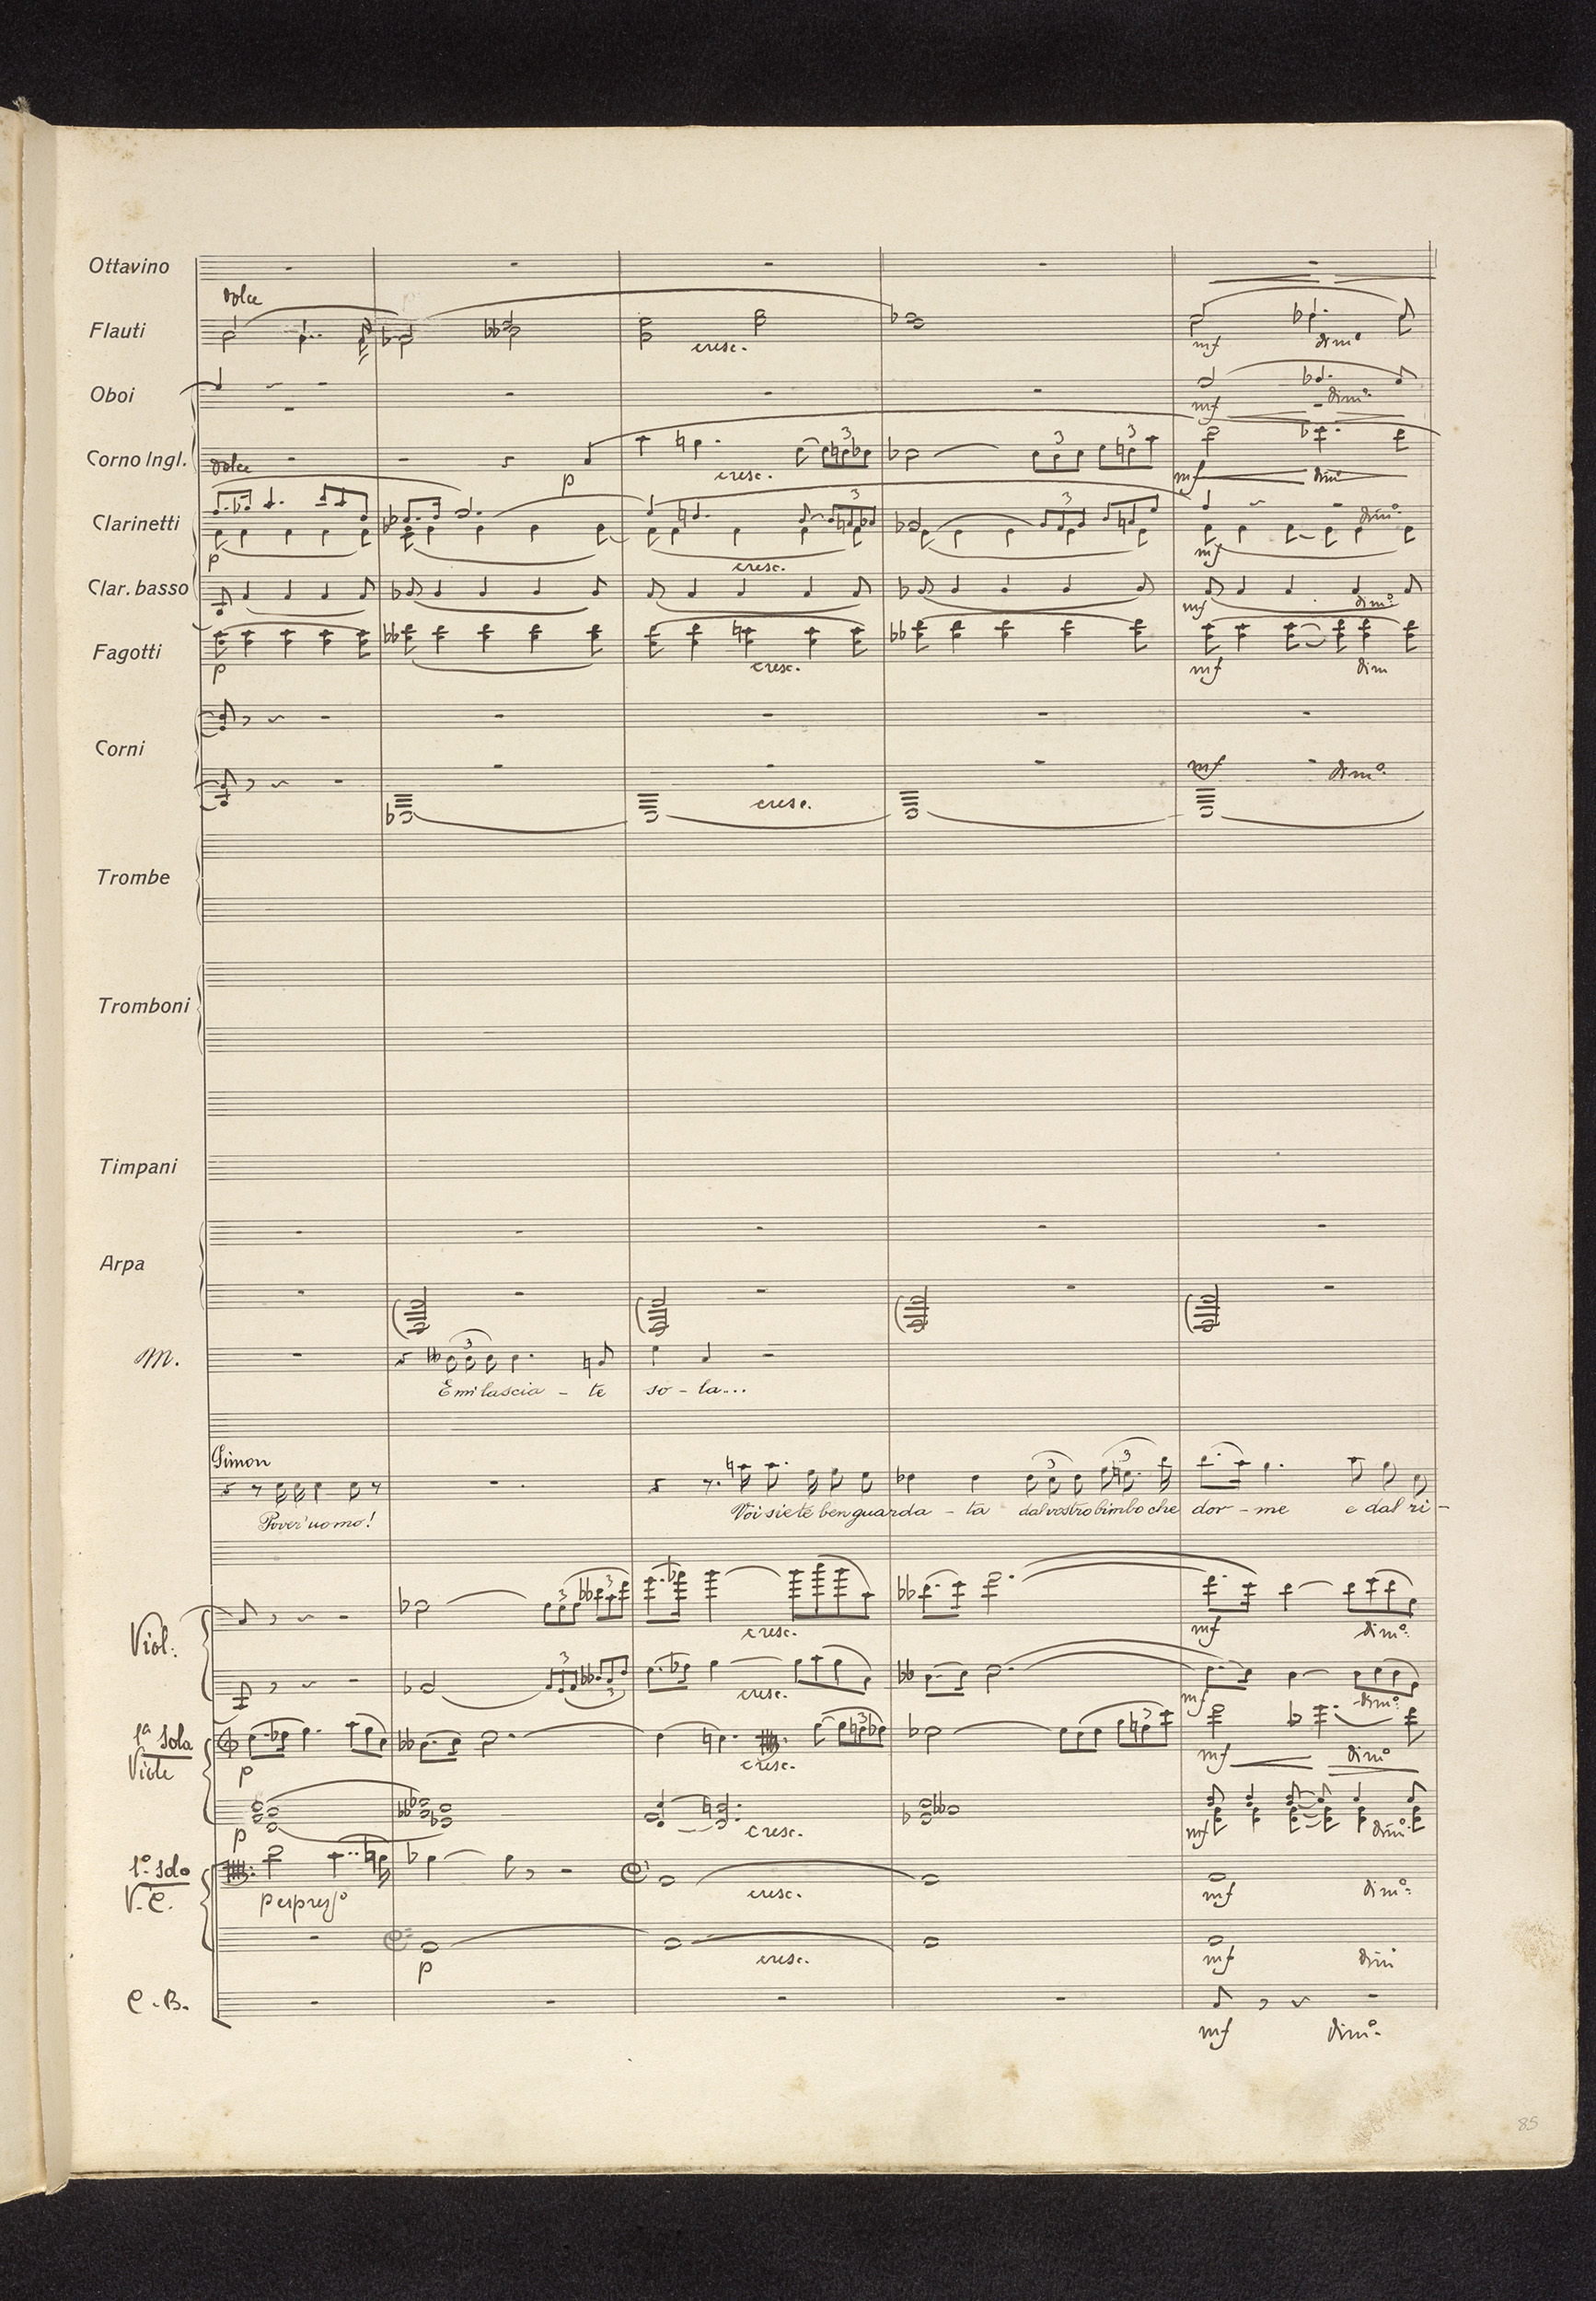 Ottavino
dolce
Flauti
cresc. mf dimo
Oboi
mf dimo.
Corno Ingl.
dolce
p cresc. mf dimo
3 3 3
Clarinetti
3 3
p cresc. mf dimo.
Clar. basso
mf dimo.
Fagotti
p cresc. mf dim
Corni
cresc. mf dimo.
Trombe
Tromboni
Timpani
Arpa
M.
3
E mi lascia - te so - la...
Simon
3 3
Pover' uomo! Voi siete ben guarda - ta dal vostro bimbo che dor - me e dal ri -
Viol:
3 3
cresc. mf dimo:
3 3
cresc. mf dimo:
1a sola
Viole
3 3
p cresc. mf dimo
p cresc. mf dimo.
1o. solo
V. C.
p espresso cresc. mf dimo:
p cresc. mf dim
C. B.
mf dimo.
85